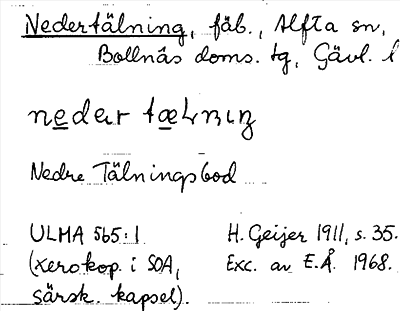 Nedertälning, fäb., Alfta sn,
Bollnäs doms. tg, Gävl. l
nedər tælnıŋ
Nedre Tälningsbod
ULMA 565:1 H. Geijer 1911, s. 35.
(xerokop. i SOA, Exc. av E.Å. 1968.
särsk. kapsel).